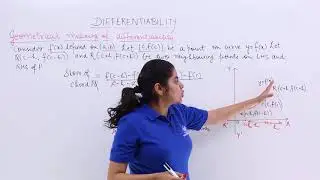 DIFFERENTIABILITY
Geometrical meaning of differentiability
Consider f(x) defined in (a,b). Let (c,f(c)) be a point on curve y=f(x). Let
Q(c-h, f(c-h)) and R(c+h, f(c+h)) be two neighbouring points on LHS and
RHS of P.
Slope of = f(c-h) - f(c)
Chord PQ
Y
R(c+h, f(c+h))
(c, f(c))
X
Y'